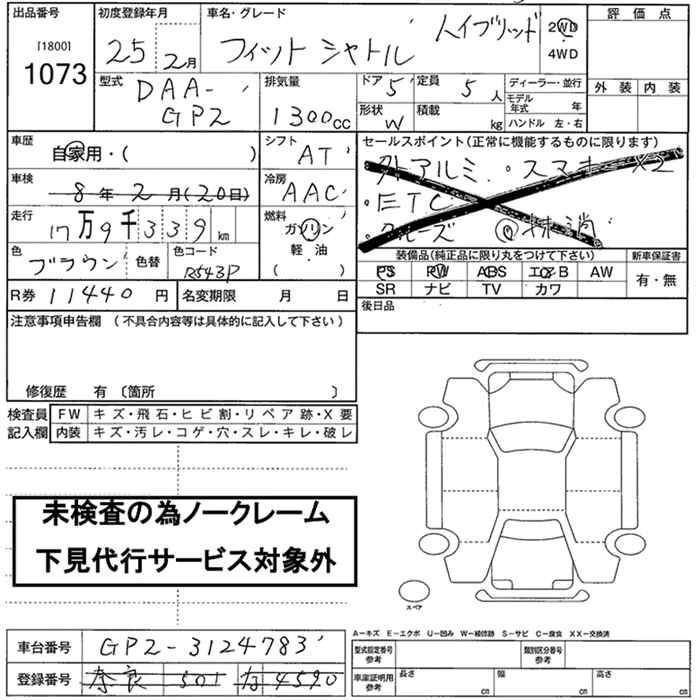 出品番号 初度登録年月 車名・グレード 評価点
[1800]
1073
25 2月
フィットシャトル ハイブリッド
2WD
4WD
型式 DAA-
GP2
排気量
1300cc
ドア 5 定員 5人
形状 W 積載 kg
ディーラー・並行
モデル年式 年
ハンドル 左・右
外装 内装
車歴 自家用・( )
シフト AT
車検 8年2月(20日)
冷房 AAC
走行 17万9千339km
燃料 ガソリン
軽・油
( )
色 ブラウン 色替 色コード R543P
R券 11440円 名変期限 月 日
セールスポイント(正常に機能するものに限ります)
・外アルミ ・スマキーX2
・ETC
・クルーズ 抹消
装備品(純正品に限り丸をつけて下さい) 新車保証書
PS PW ABS エアB AW 有・無
SR ナビ TV カワ
後日品
注意事項申告欄(不具合内容等は具体的に記入して下さい)
修復歴 有〔箇所 〕
検査員 FW キズ・飛石・ヒビ割・リペア跡・X要
記入欄 内装 キズ・汚レ・コゲ・穴・スレ・キレ・破レ
未検査の為ノークレーム
下見代行サービス対象外
スペア
A−キズ E−エクボ U−凹み W−補修跡 S−サビ C−腐食 XX−交換済
車台番号 GP2-3124783
登録番号 奈良 501 な 4590
型式指定番号 参考 類別区分番号 参考
車庫証明用 参考 長さ cm 幅 cm 高さ cm